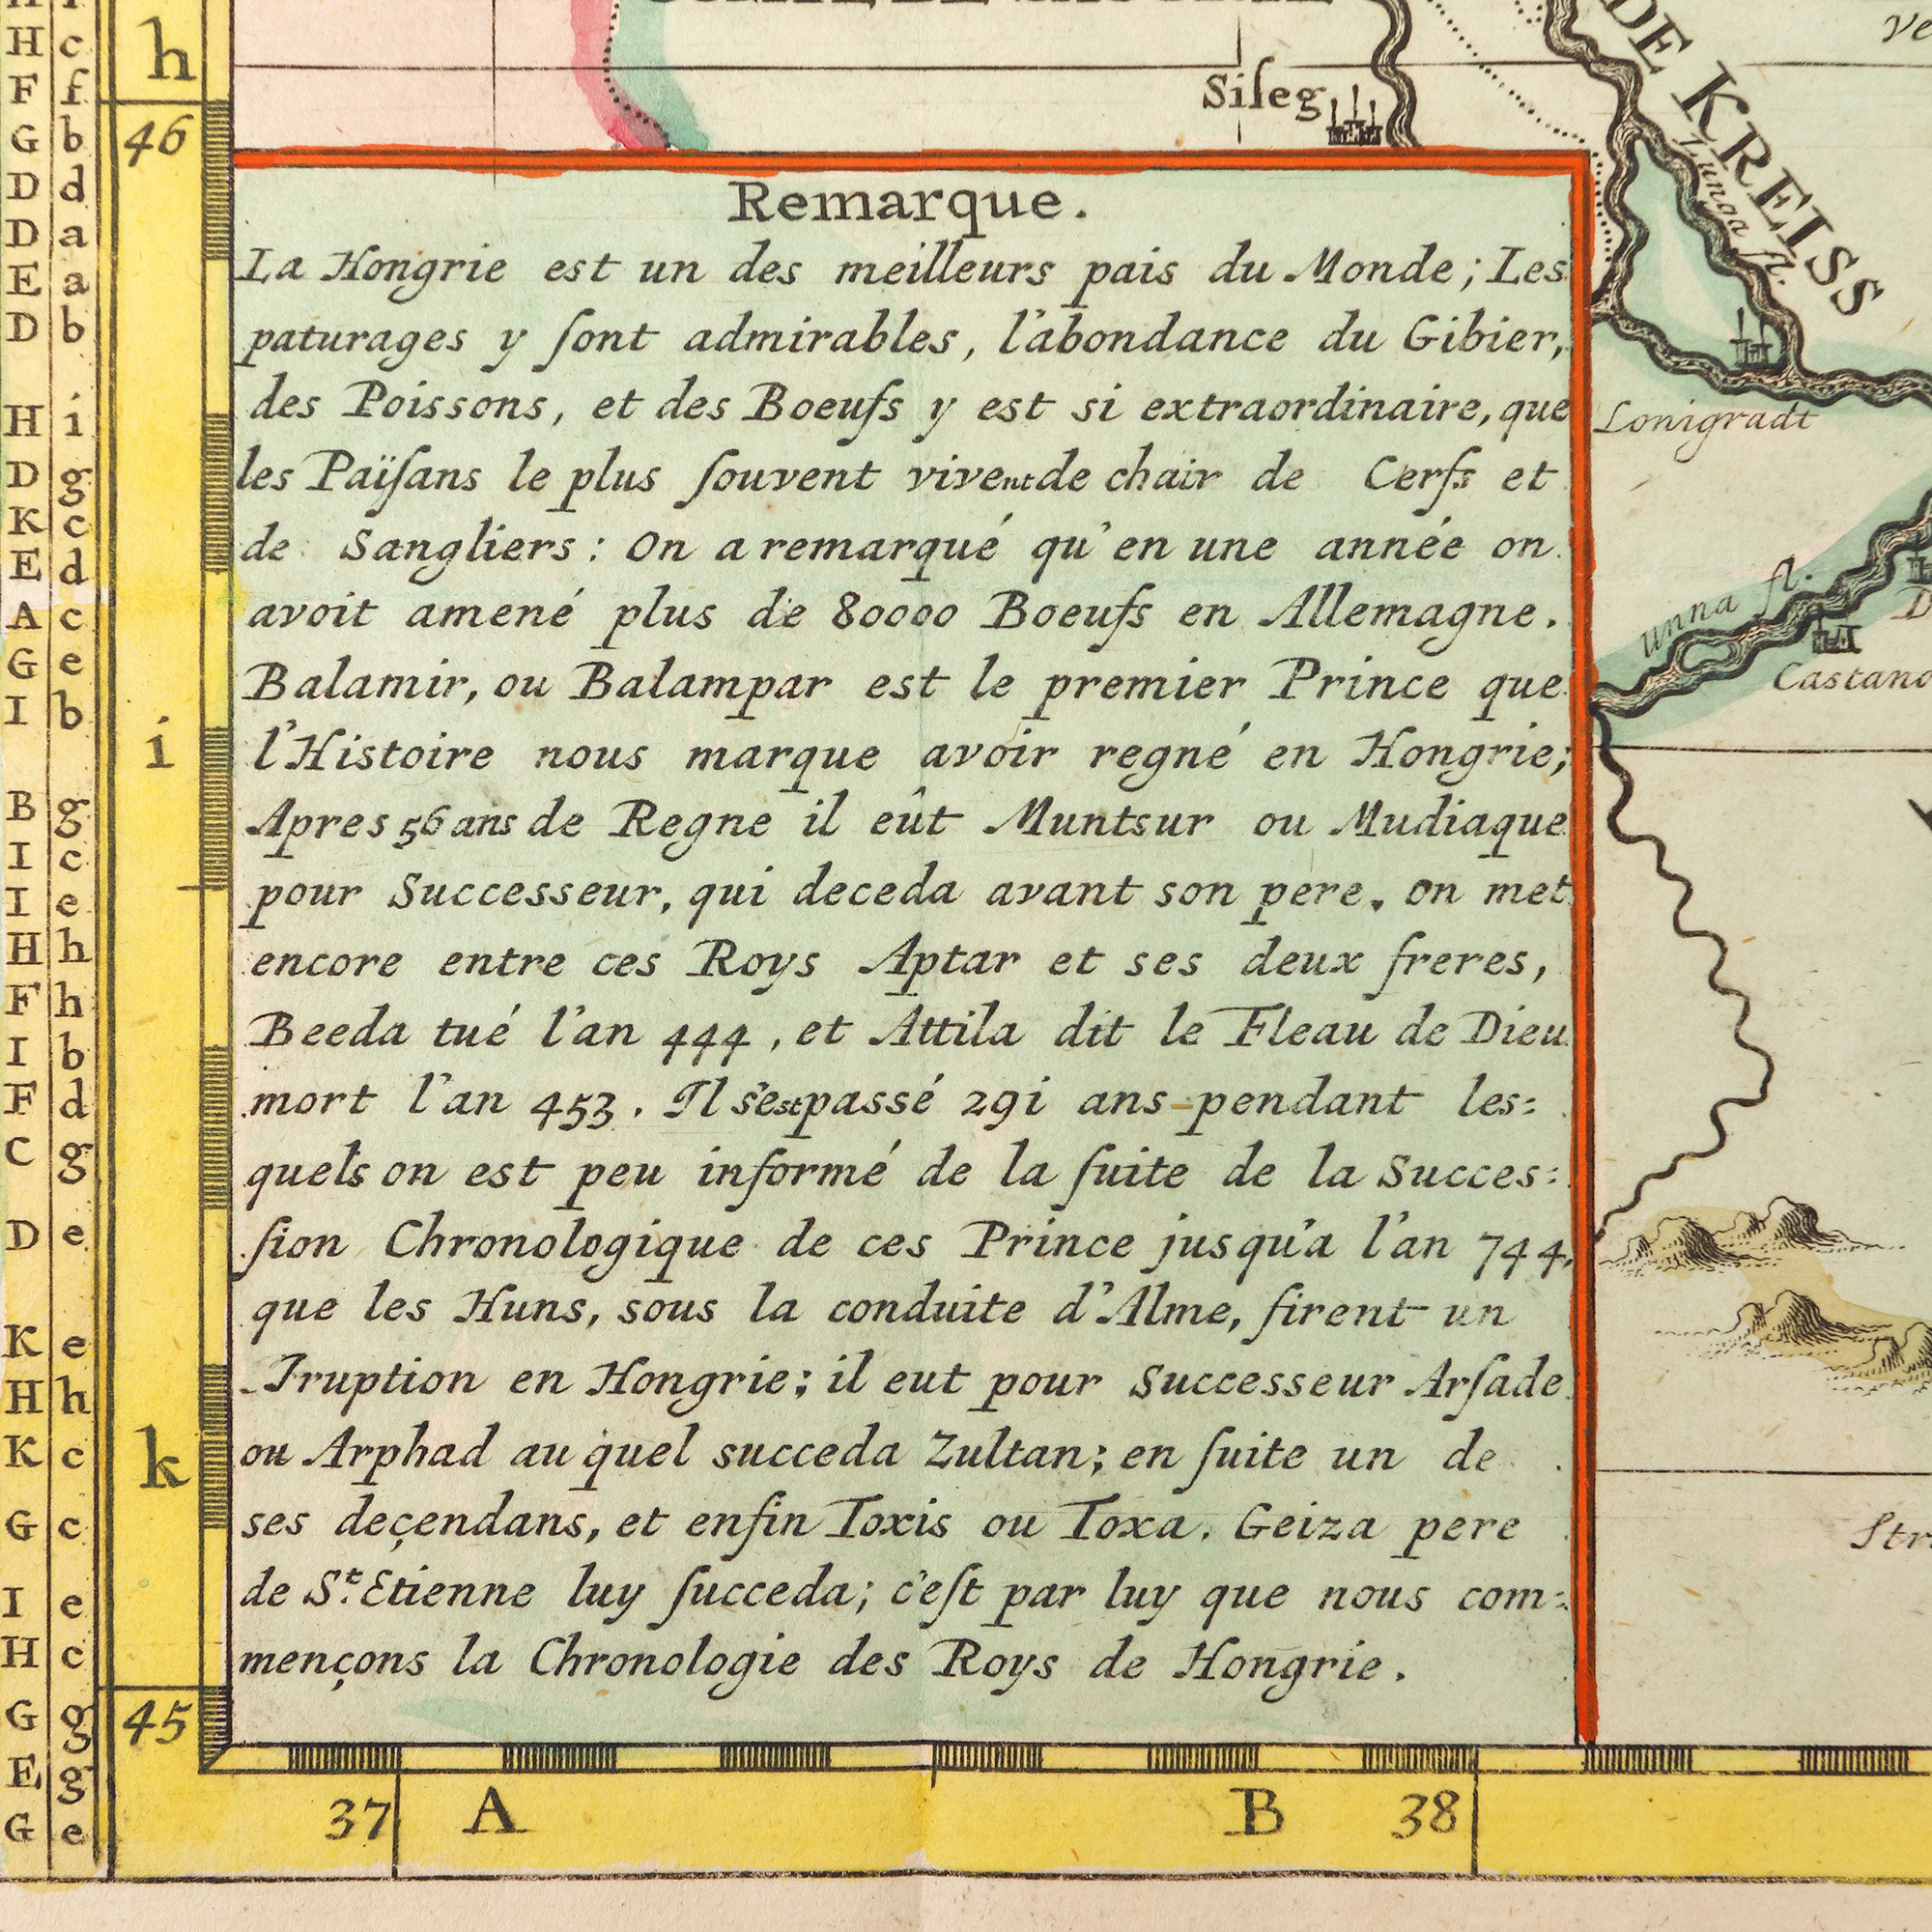 Sileg
DE KREISS
Lunoa fl.
Remarque.
La Hongrie est un des meilleurs pais du Monde; Les
paturages y ſont admirables, l'abondance du Gibier,
des Poissons, et des Boeufs y est si extraordinaire, que
les Païſans le plus ſouvent vivent de chair de Cerfs et
de Sangliers: On a remarqué qu'en une année on
avoit amené plus de 80000 Boeufs en Allemagne.
Balamir, ou Balampar est le premier Prince que
l'Histoire nous marque avoir regné en Hongrie;
Apres 56 ans de Regne il eût Muntsur ou Mudiaque
pour Successeur, qui deceda avant son pere. on met
encore entre ces Roys Aptar et ses deux freres,
Beeda tué l'an 444, et Attila dit le Fleau de Dieu
mort l'an 453. Il s'est passé 291 ans pendant les=
quels on est peu informé de la ſuite de la Succes=
ſion Chronologique de ces Prince jusqu'a l'an 744,
que les Huns, sous la conduite d'Alme, firent un
Iruption en Hongrie; il eut pour Successeur Arſade
ou Arphad au quel succeda Zultan; en ſuite un de
ses deçendans, et enfin Toxis ou Toxa. Geiza pere
de St. Etienne luy ſucceda; c'eſt par luy que nous com=
mençons la Chronologie des Roys de Hongrie.
Lonigradt
unna fl.
Castano
Str
H c
F f
G b
D d
D a
E a
D b
H i
D g
K c
E d
A c
G e
I b
B g
I c
I e
H h
F h
I b
F d
C g
D e
K e
H h
K c
G c
I e
H c
G g
E g
G e
h
46
i
k
45
37 A B 38